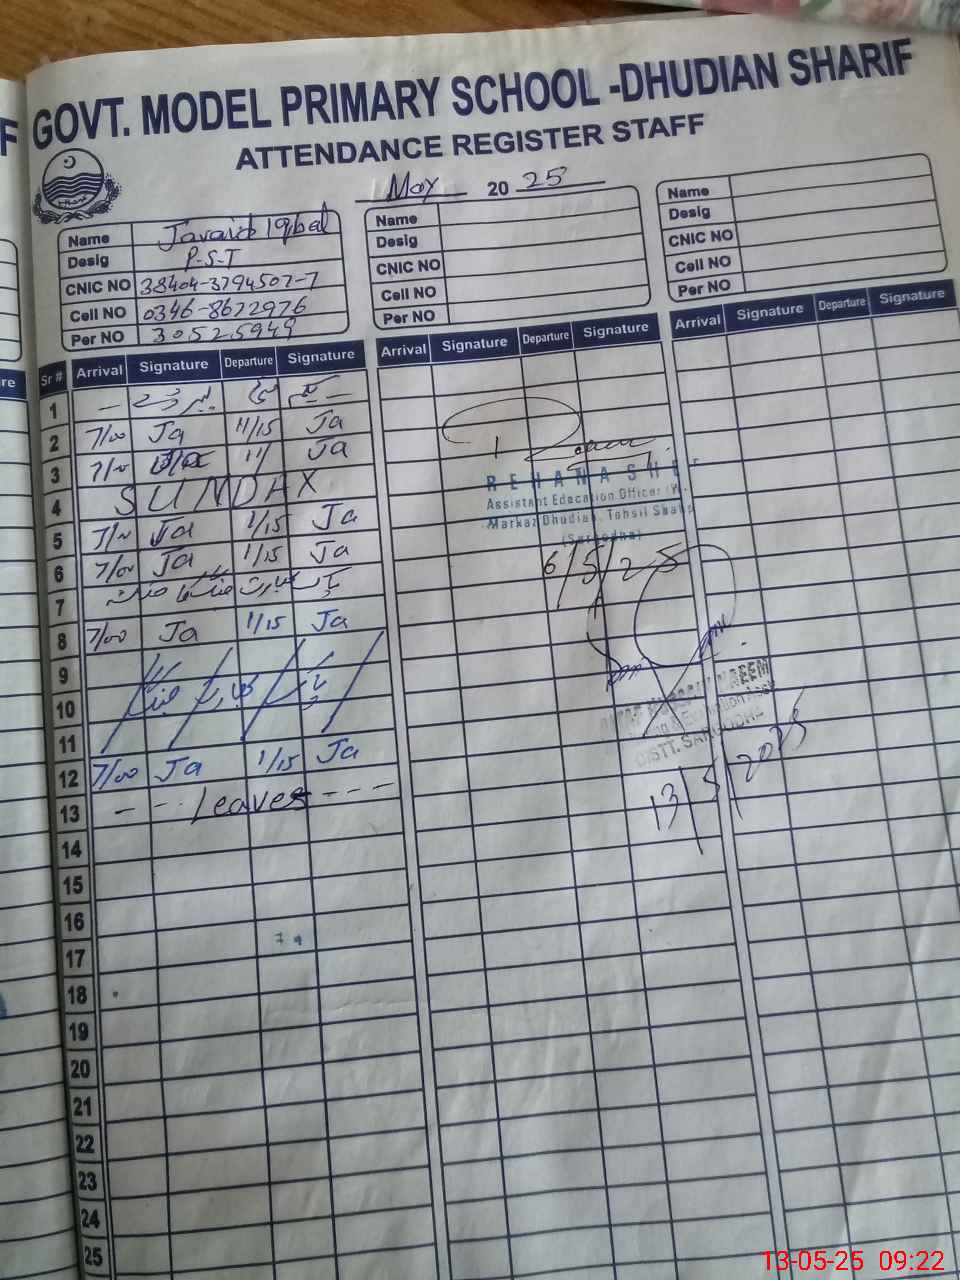 GOVT. MODEL PRIMARY SCHOOL -DHUDIAN SHARIF
ATTENDANCE REGISTER STAFF
May 2025
Name Javaid Iqbal
Desig P.S.T
CNIC NO 38404-3794507-7
Cell NO 0346-8672976
Per NO 30525949
Name
Desig
CNIC NO
Cell NO
Per NO
Name
Desig
CNIC NO
Cell NO
Per NO
Sr # Arrival Signature Departure Signature Arrival Signature Departure Signature Arrival Signature Departure Signature
1
2 7/00 Ja 11/15 Ja
3 7/00 11/ Ja
4 SUNDAY
5 7/00 Ja 1/15 Ja
6 7/00 Ja 1/15 Ja
7
8 7/00 Ja 1/15 Ja
9
10
11
12 7/00 Ja 1/15 Ja
13 - -- Leaves - - -
14
15
16
17
18
19
20
21
22
23
24
25
REHANA SHE
Assistant Education Officer (W
Markaz Dhudian, Tehsil Shahp
(Sargodha)
6/5/25
NAEEM
DISTT. SARGODHA
13/5/2025
13-05-25 09:22